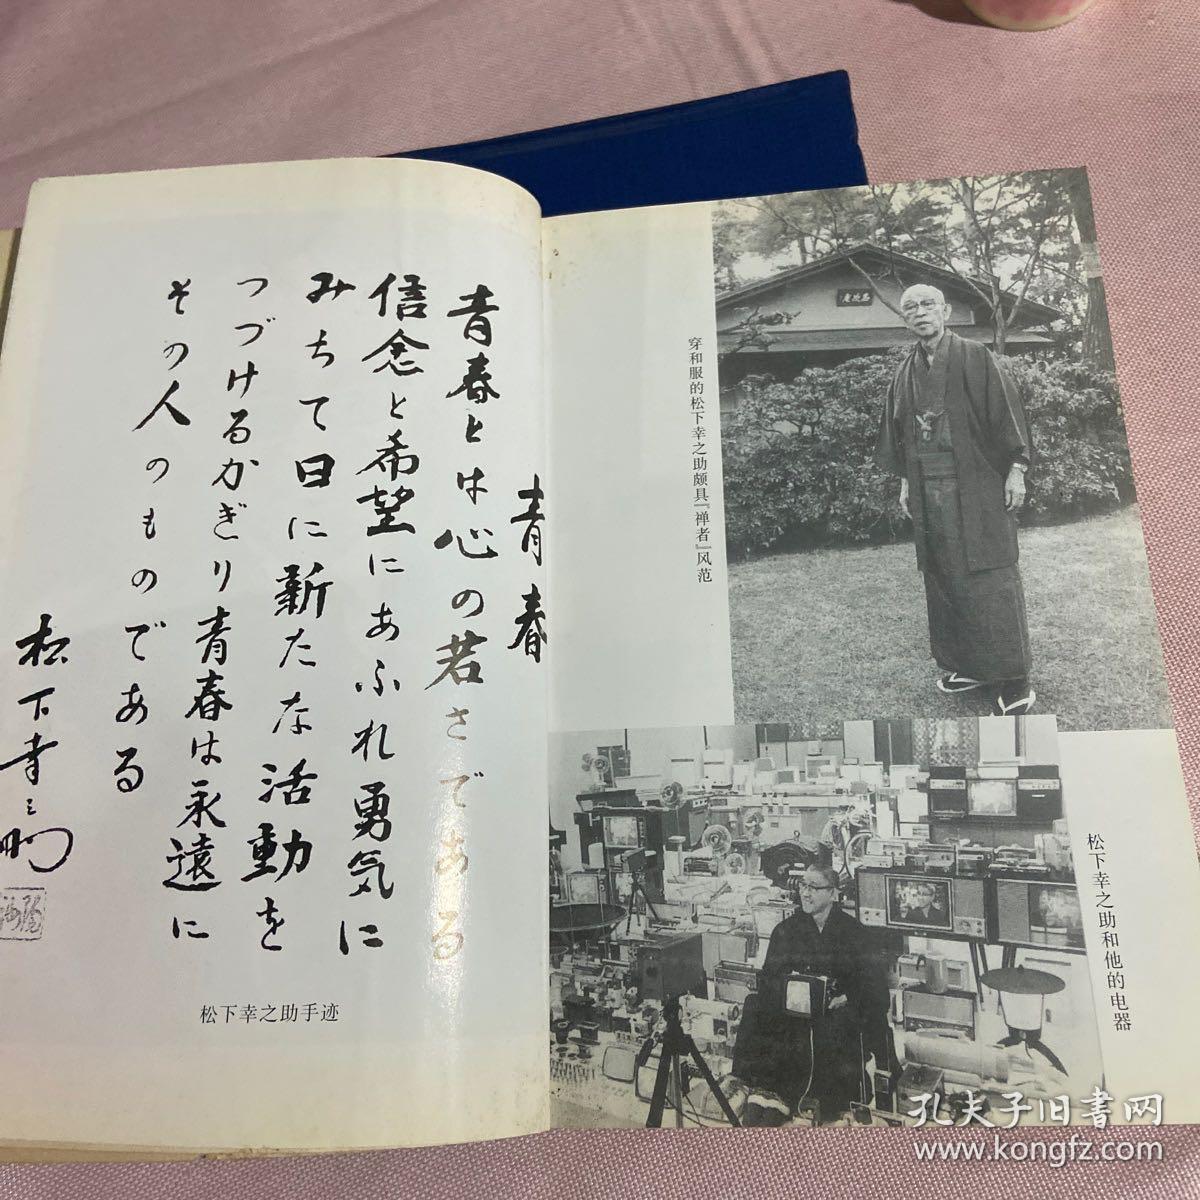 青春
青春とは心の若さである
信念と希望にあふれ勇気に
みちて日に新たな活動を
つづけるかぎり青春は永遠に
その人のものである
松下幸之助
松下幸之助手迹
穿和服的松下幸之助颇具『禅者』风范
松下幸之助和他的电器
孔夫子旧书网
www.kongfz.com